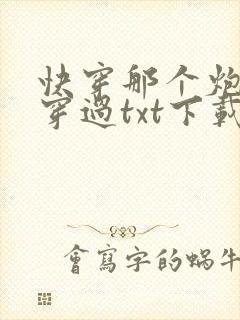 快穿那个炮
穿過txt下載
會寫字的蝸牛